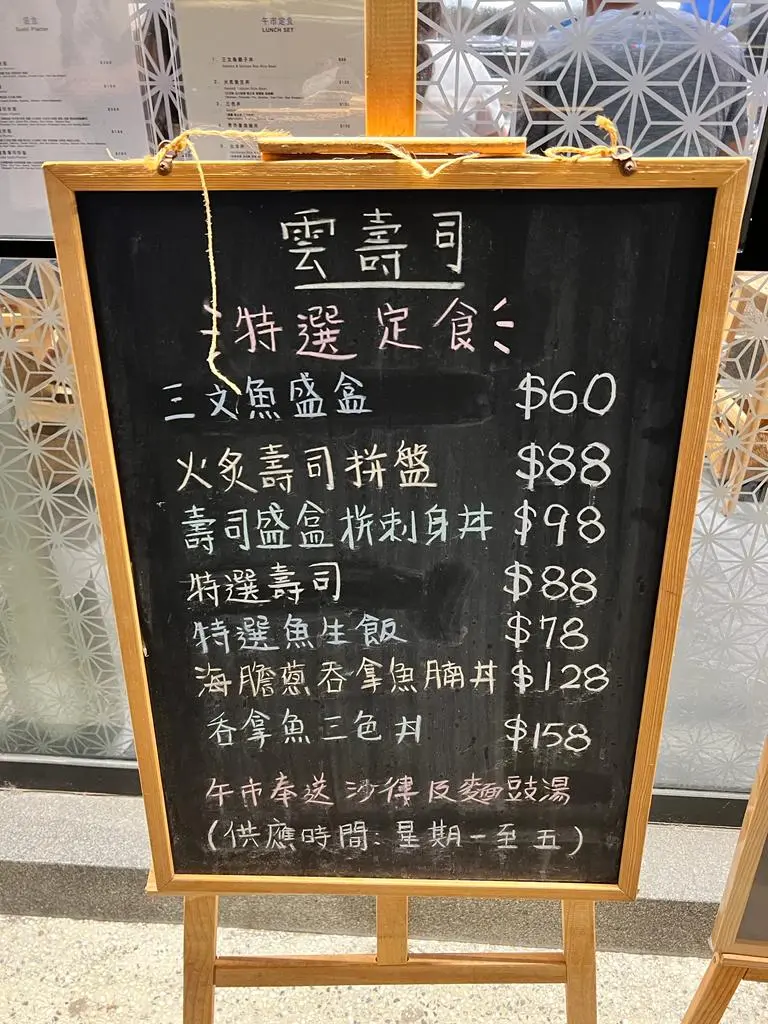 午市定食
LUNCH SET
雲壽司
特選定食
三文魚盛盒 $60
火炙壽司拼盤 $88
壽司盛盒拼刺身丼 $98
特選壽司 $88
特選魚生飯 $78
海膽蔥吞拿魚腩丼 $128
吞拿魚三色丼 $158
午市奉送沙律及麵豉湯
(供應時間: 星期一至五)